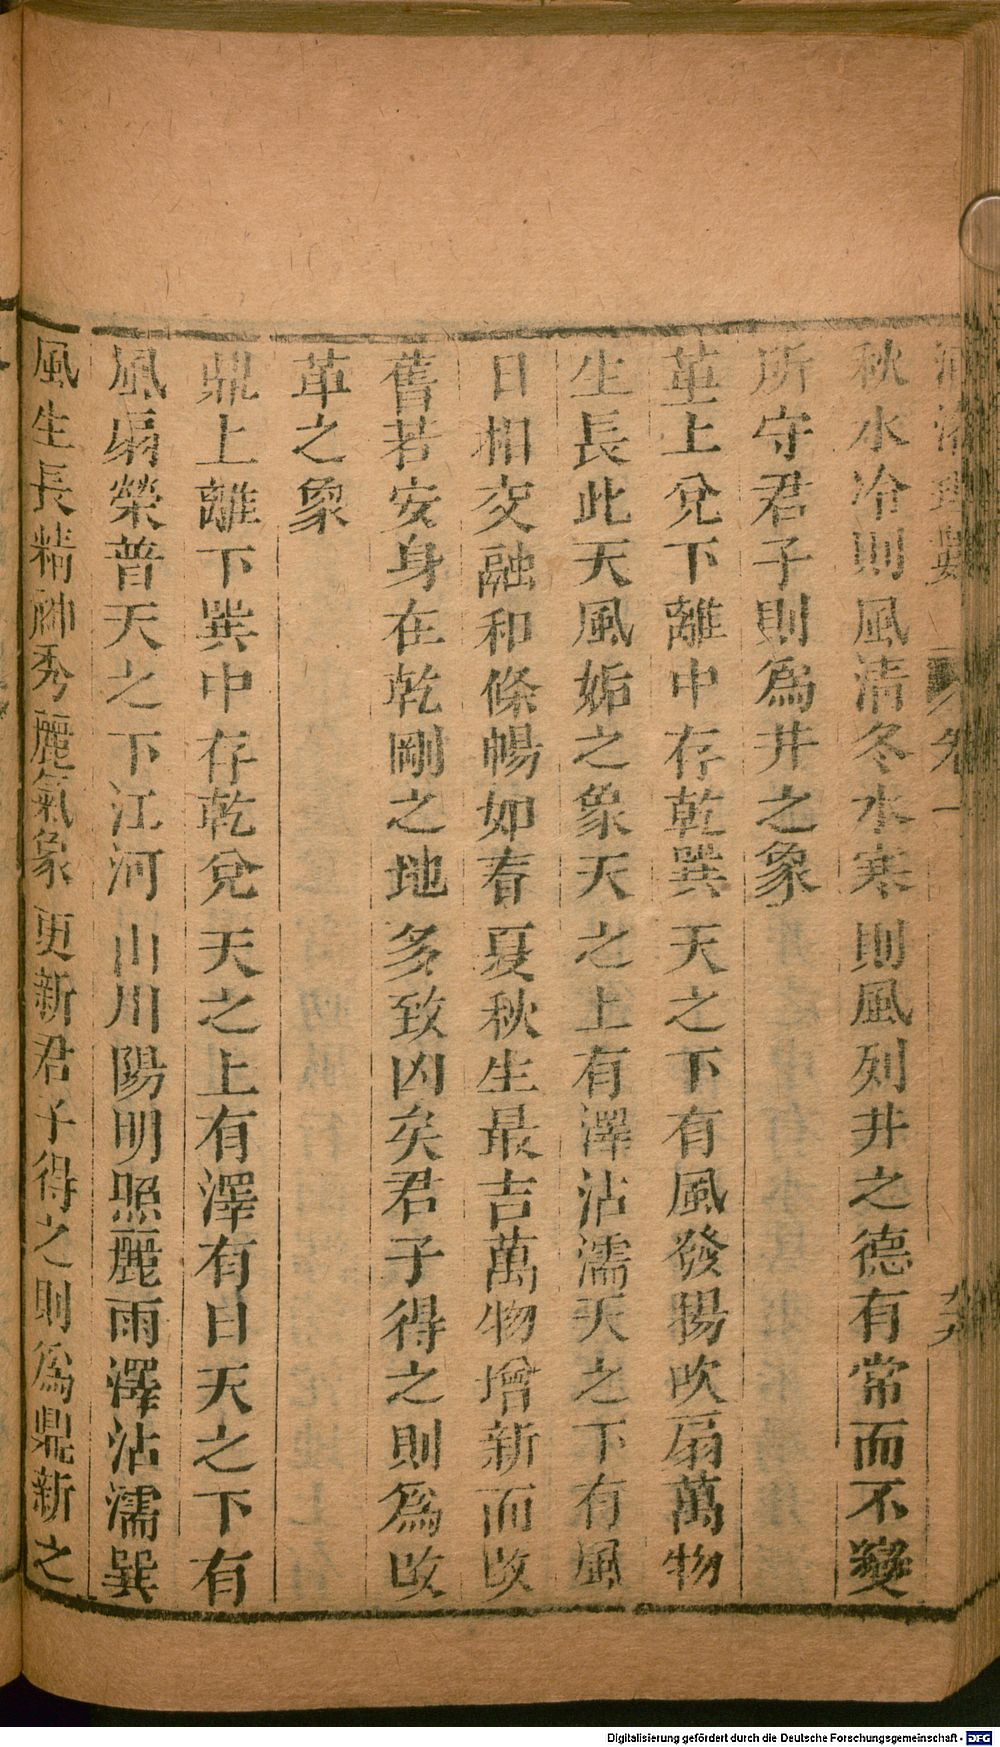 河洛理數 卷一 九六
秋水冷則風清冬水寒則風列井之德有常而不變
所守君子則為井之象
革上兌下離中存乾巽天之下有風發揚吹扇萬物
生長此天風姤之象天之上有澤沾濡天之下有風
日相交融和條暢如春夏秋生最吉萬物增新而改
舊若安身在乾剛之地多致凶矣君子得之則為改
革之象
鼎上離下巽中存乾兌天之上有澤有日天之下有
風扇榮普天之下江河山川陽明照麗雨澤沾濡巽
風生長精神秀麗氣象更新君子得之則為鼎新之
Digitalisierung gefördert durch die Deutsche Forschungsgemeinschaft - DFG